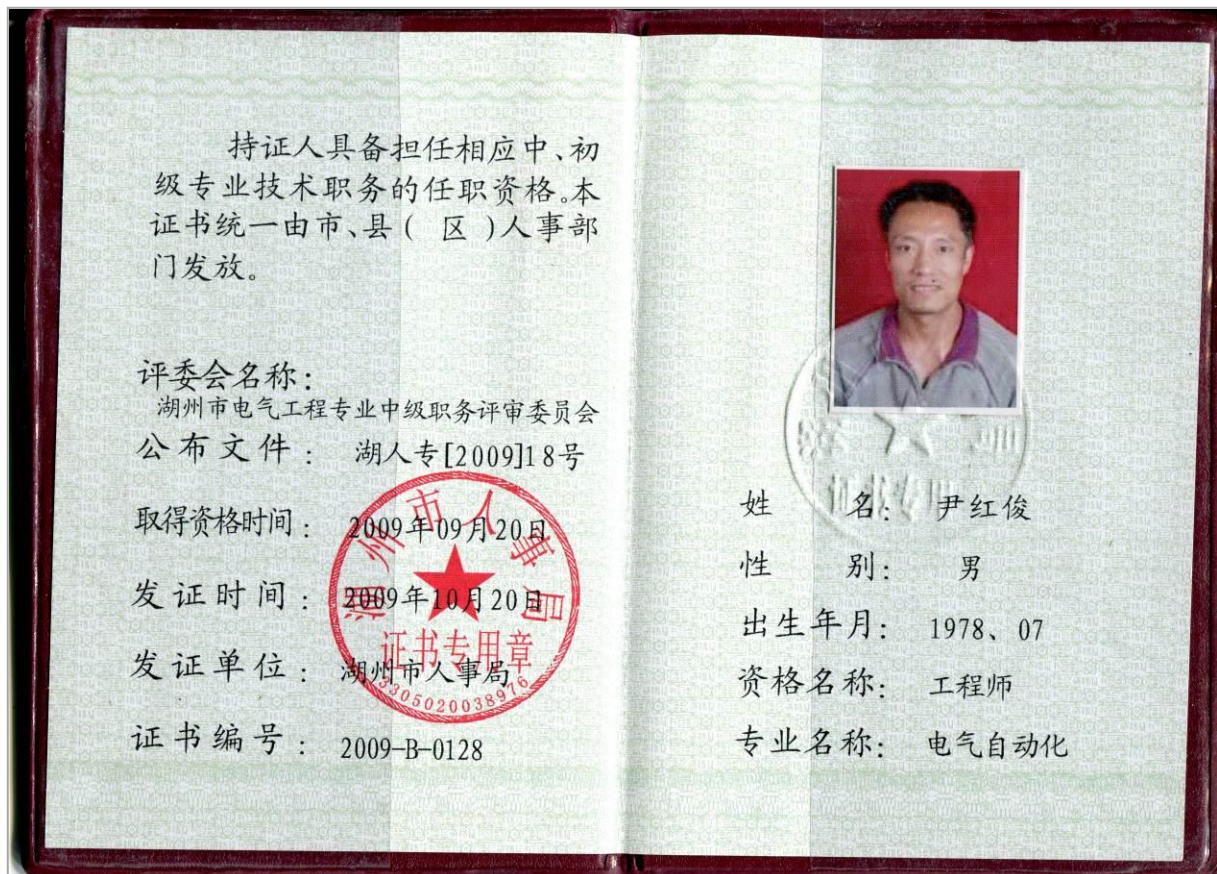 持证人具备担任相应中、初
级专业技术职务的任职资格。本
证书统一由市、县(区)人事部
门发放。
评委会名称：
湖州市电气工程专业中级职务评审委员会
公布文件： 湖人专[2009]18号
取得资格时间： 2009年09月20日
发证时间： 2009年10月20日
发证单位： 湖州市人事局
证书编号： 2009-B-0128
湖州市人事局
证书专用章
3305020038976
证书专用
姓名： 尹红俊
性别： 男
出生年月： 1978、07
资格名称： 工程师
专业名称： 电气自动化